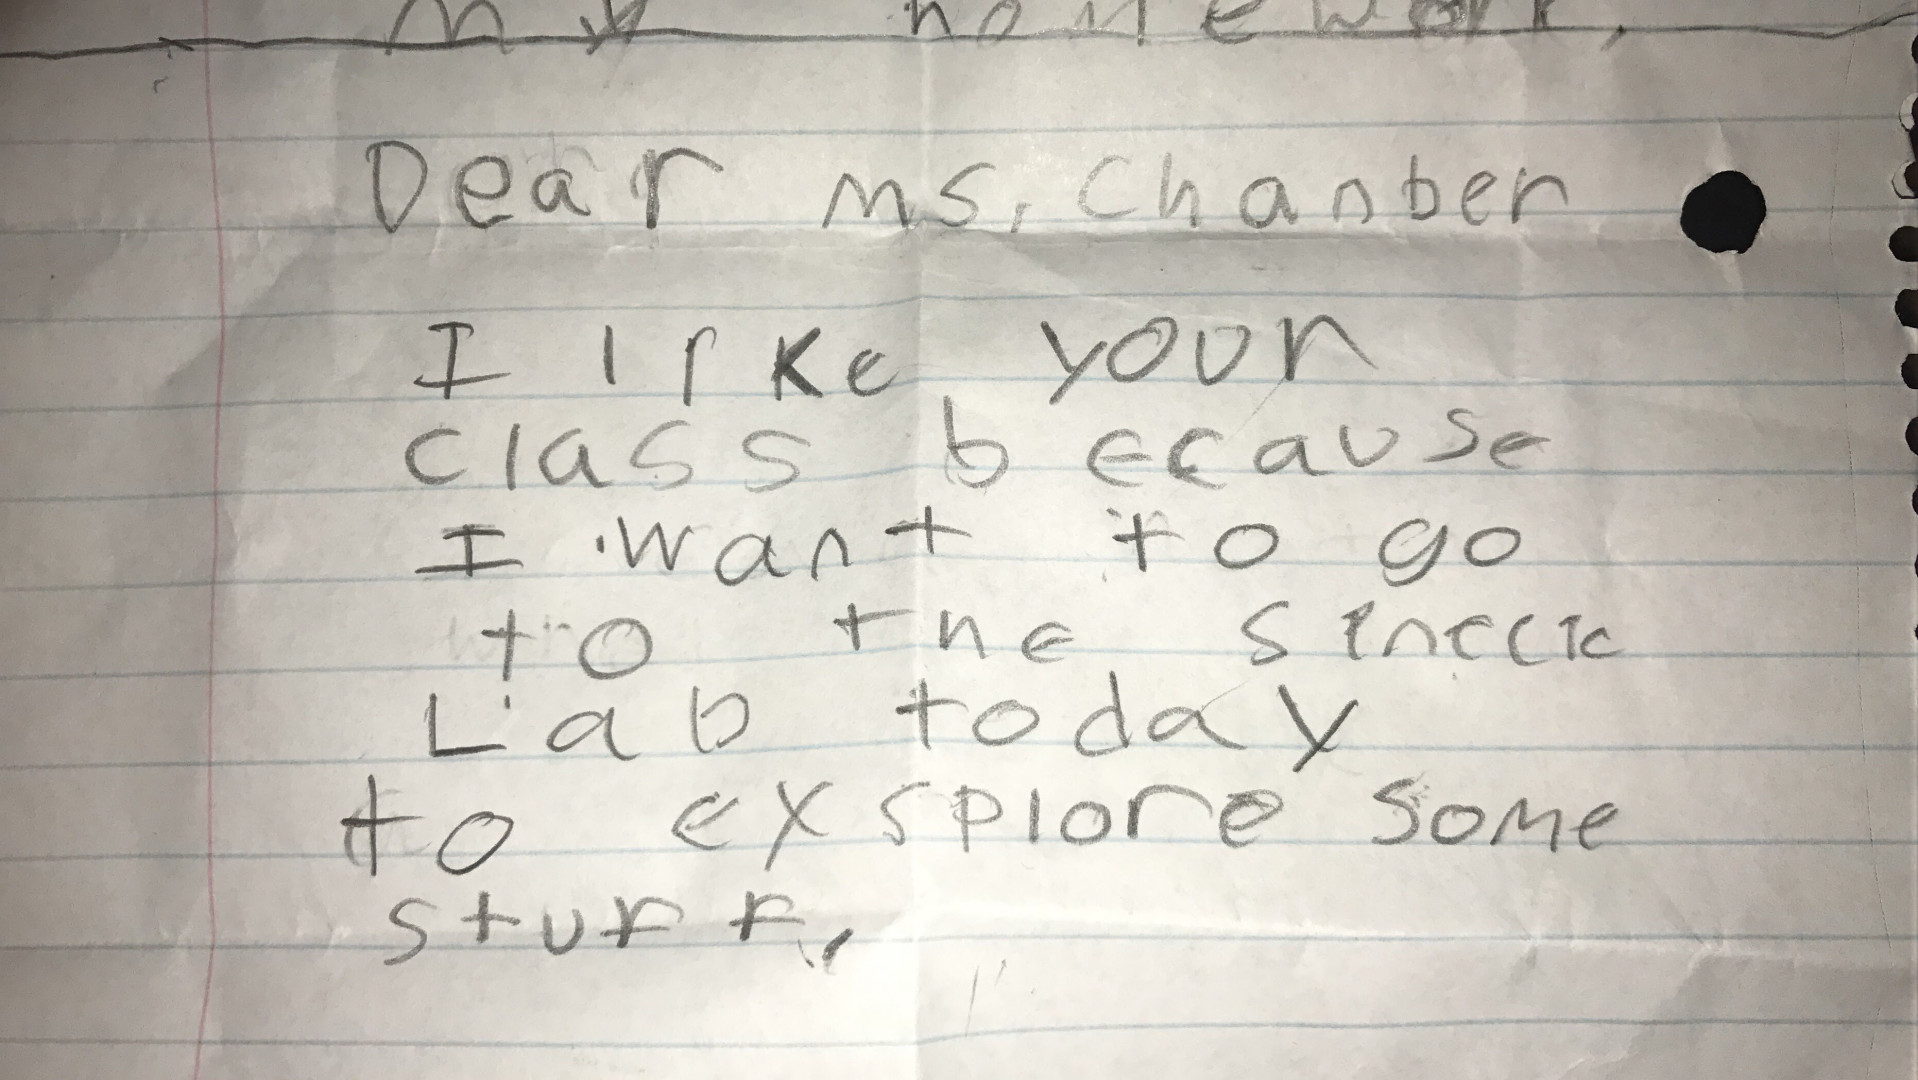 my homework.
Dear ms. Chanber
I like your
class because
I want to go
to the sinecic
Lab today
to exsplore some
stuff.